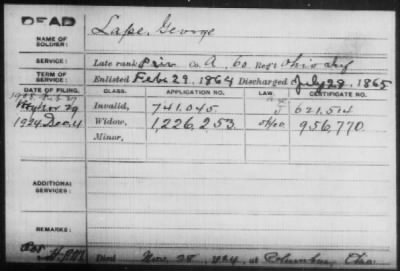 DEAD
NAME OF SOLDIER: Lape, George
SERVICE: Late rank Priv Co. A, 60 Reg't Ohio Inf
TERM OF SERVICE: Enlisted Feb. 29, 1864 Discharged July 28, 1865
DATE OF FILING. CLASS. APPLICATION NO. LAW. CERTIFICATE NO.
Invalid, 741.045 621.514
1924 Dec. 4 Widow, 1,226,253 Ohio 956,770
Minor,
ADDITIONAL SERVICES:
REMARKS:
Died Nov. 28 1924, at Columbus, Ohio